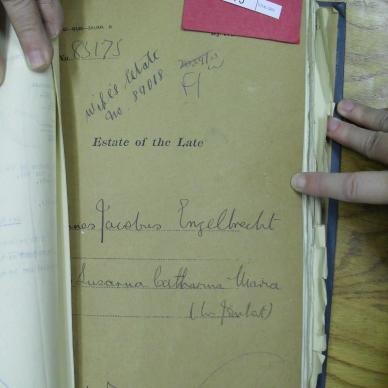 No. 85175
Wife's Estate
no. 89018
F1
Estate of the Late
nes Jacobus Engelbrecht
Susanna Catharina Maria